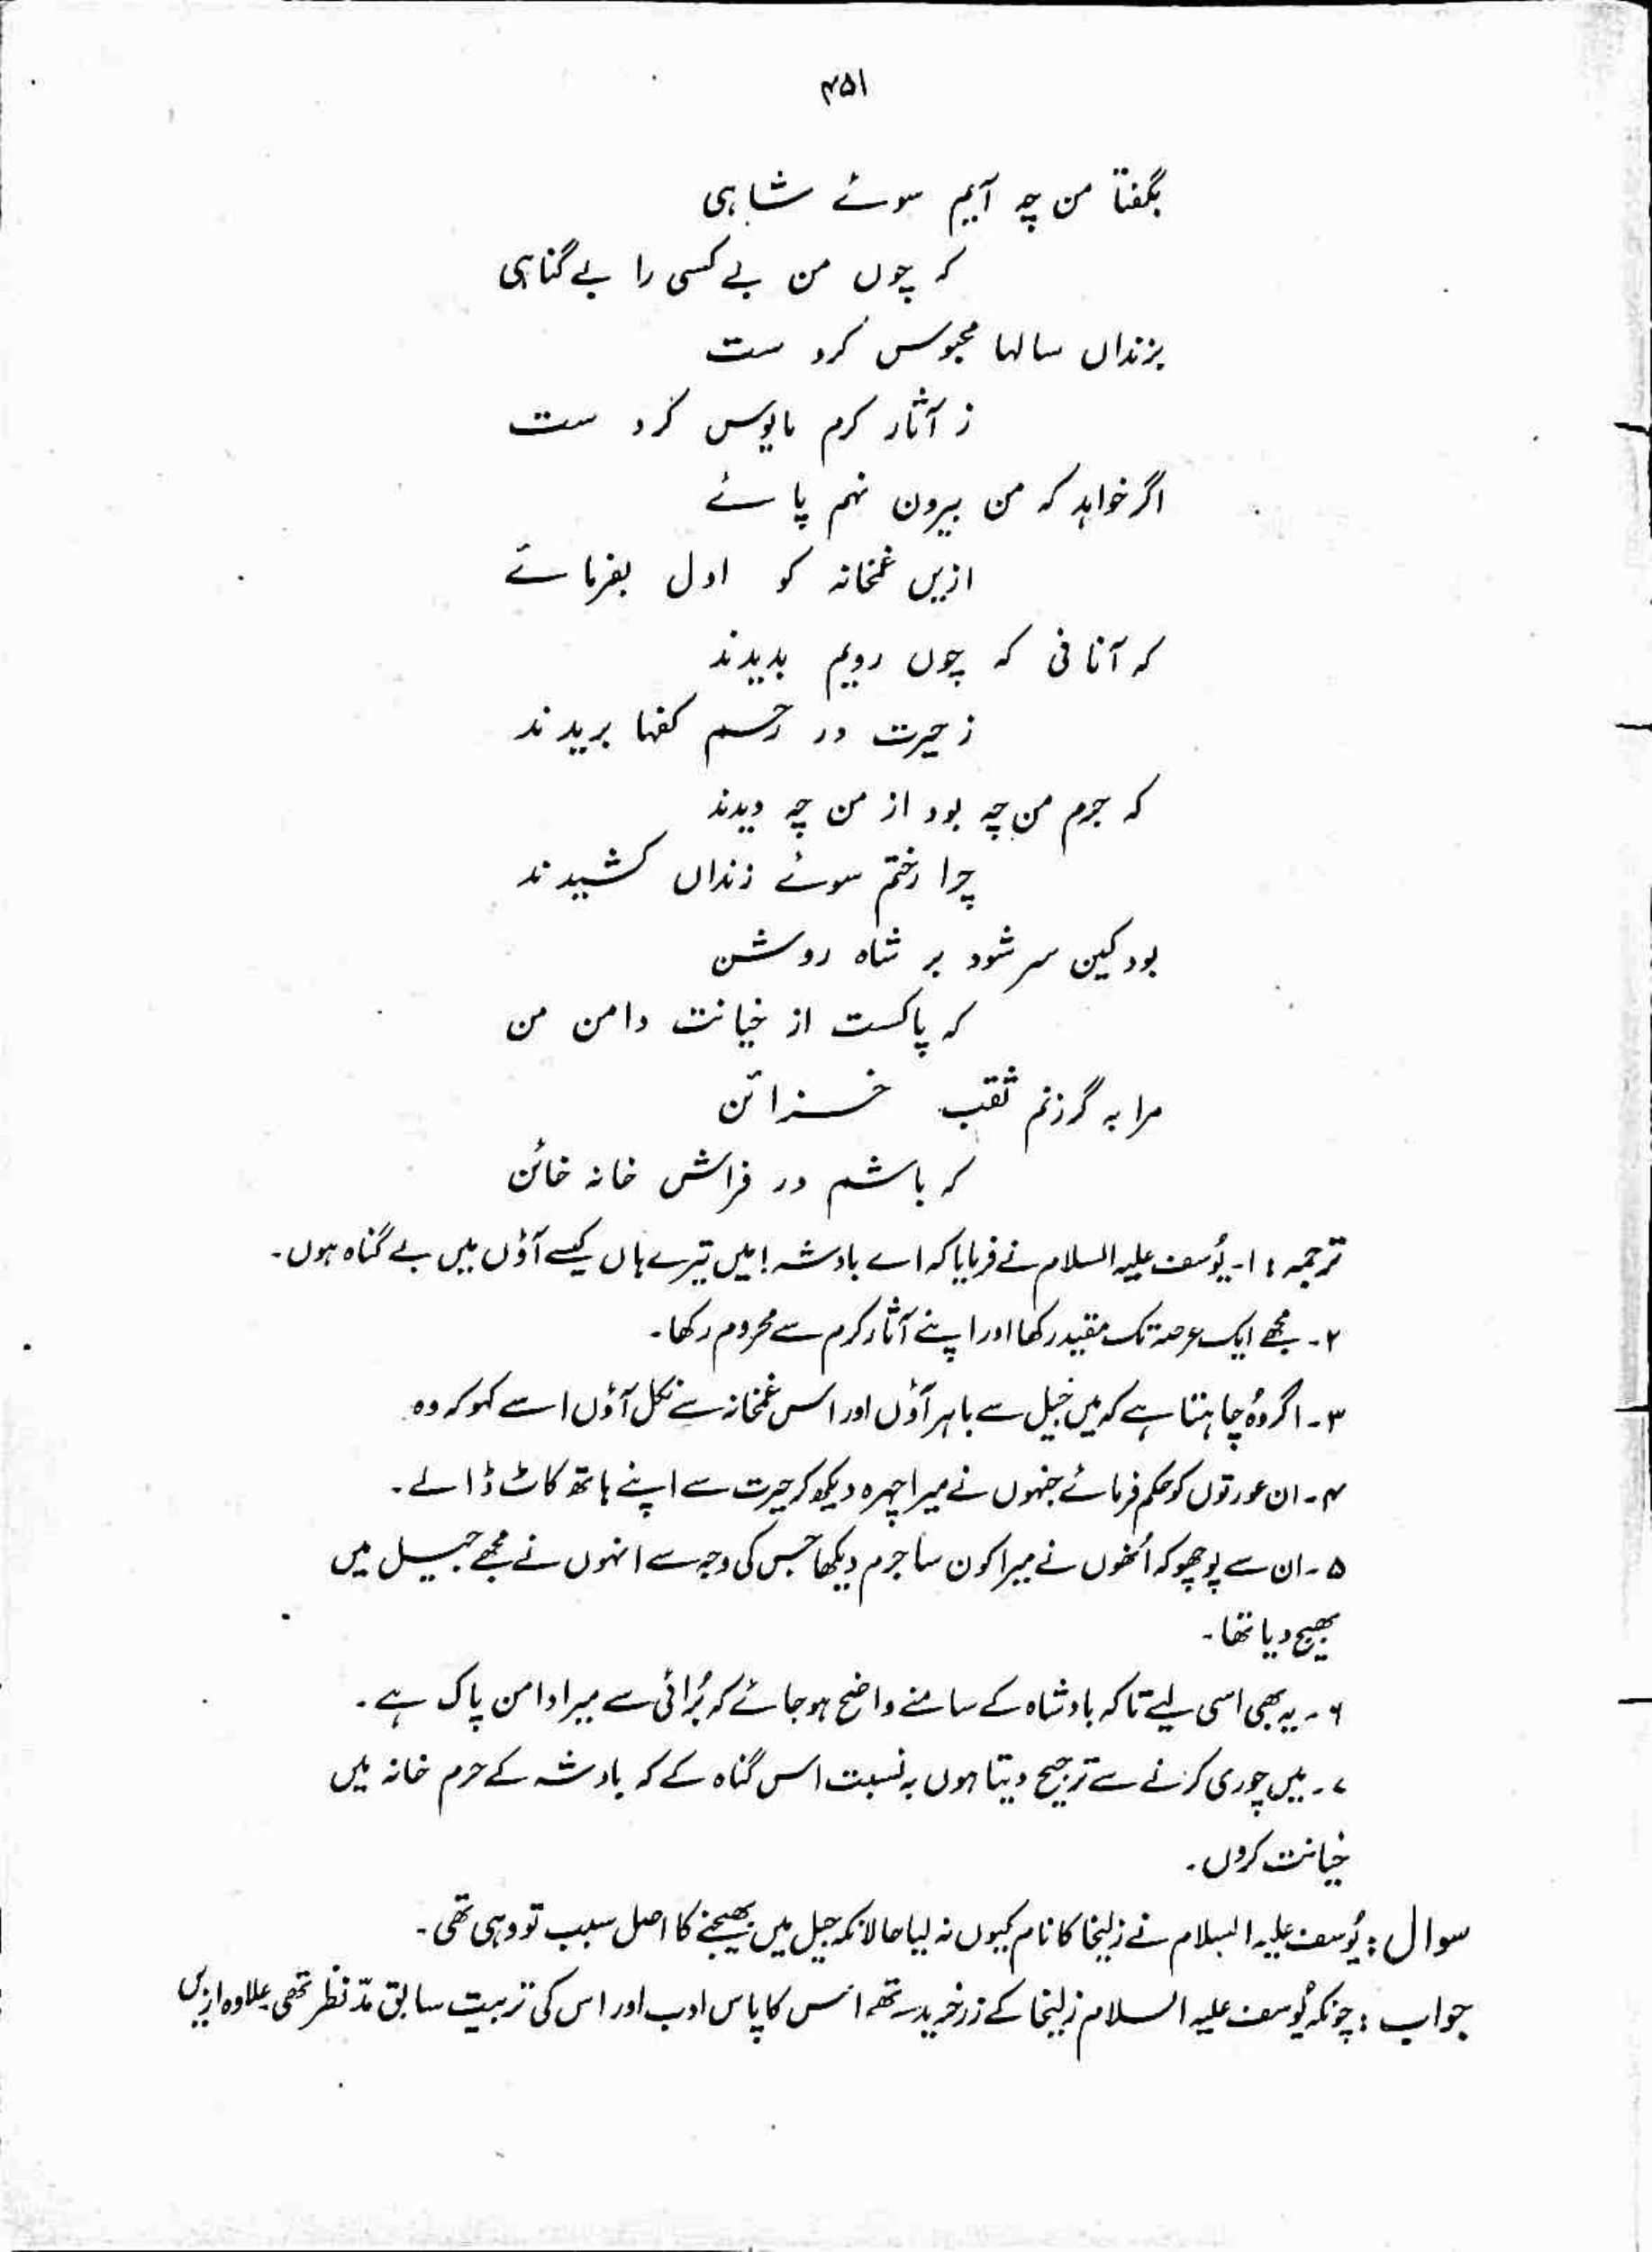 ۴۵۱
بگفتا من چہ آیم سوئے شاہی
کہ چوں من بے کسی را بے گناہی
بزنداں سالہا محبوس کرد ست
ز آثار کرم مایوس کرد ست
اگر خواہد کہ من بیرون نہم پائے
ازیں غمخانہ کو اول بفرمائے
کہ آنانی کہ چوں رویم بدیدند
ز حیرت در رخسم کفہا بریدند
کہ جرم من چہ بود از من چہ دیدند
چرا رختم سوئے زنداں کشیدند
بود کین سر شود بر شاہ روشن
کہ پاکست از خیانت دامن من
مرا بہ گر زنم ثقب خزائن
کہ باشم در فراش خانہ خائن
ترجمہ : ۱۔ یُوسف علیہ السلام نے فرمایا کہ اے بادشہ! میں تیرے ہاں کیسے آؤں میں بے گناہ ہوں۔
۲۔ مجھے ایک عرصۃ تک مقید رکھا اور اپنے آثار کرم سے محروم رکھا۔
۳۔ اگر وُہ چاہتا ہے کہ میں جیل سے باہر آؤں اور اس غمخانہ سے نکل آؤں اسے کہو کہ وہ
۴۔ ان عورتوں کو حکم فرمائے جنہوں نے میرا چہرہ دیکھ کر حیرت سے اپنے ہاتھ کاٹ ڈالے۔
۵۔ ان سے پوچھو کہ اُنھوں نے میرا کون سا جرم دیکھا جس کی وجہ سے انہوں نے مجھے جیل میں
بھیج دیا تھا۔
۶۔ یہ بھی اسی لیے تاکہ بادشاہ کے سامنے واضح ہو جائے کہ بُرائی سے میرا دامن پاک ہے۔
۷۔ میں چوری کرنے سے ترجیح دیتا ہوں بہ نسبت اس گناہ کے کہ بادشہ کے حرم خانہ میں
خیانت کروں۔
سوال : یُوسف علیہ السلام نے زلیخا کا نام کیوں نہ لیا حالانکہ جیل میں بھیجنے کا اصل سبب تو وہی تھی۔
جواب : چونکہ یُوسف علیہ السلام زلیخا کے زرخرید تھے اس کا پاس ادب اور اس کی تربیت سابق مدّنظر تھی علاوہ ازیں